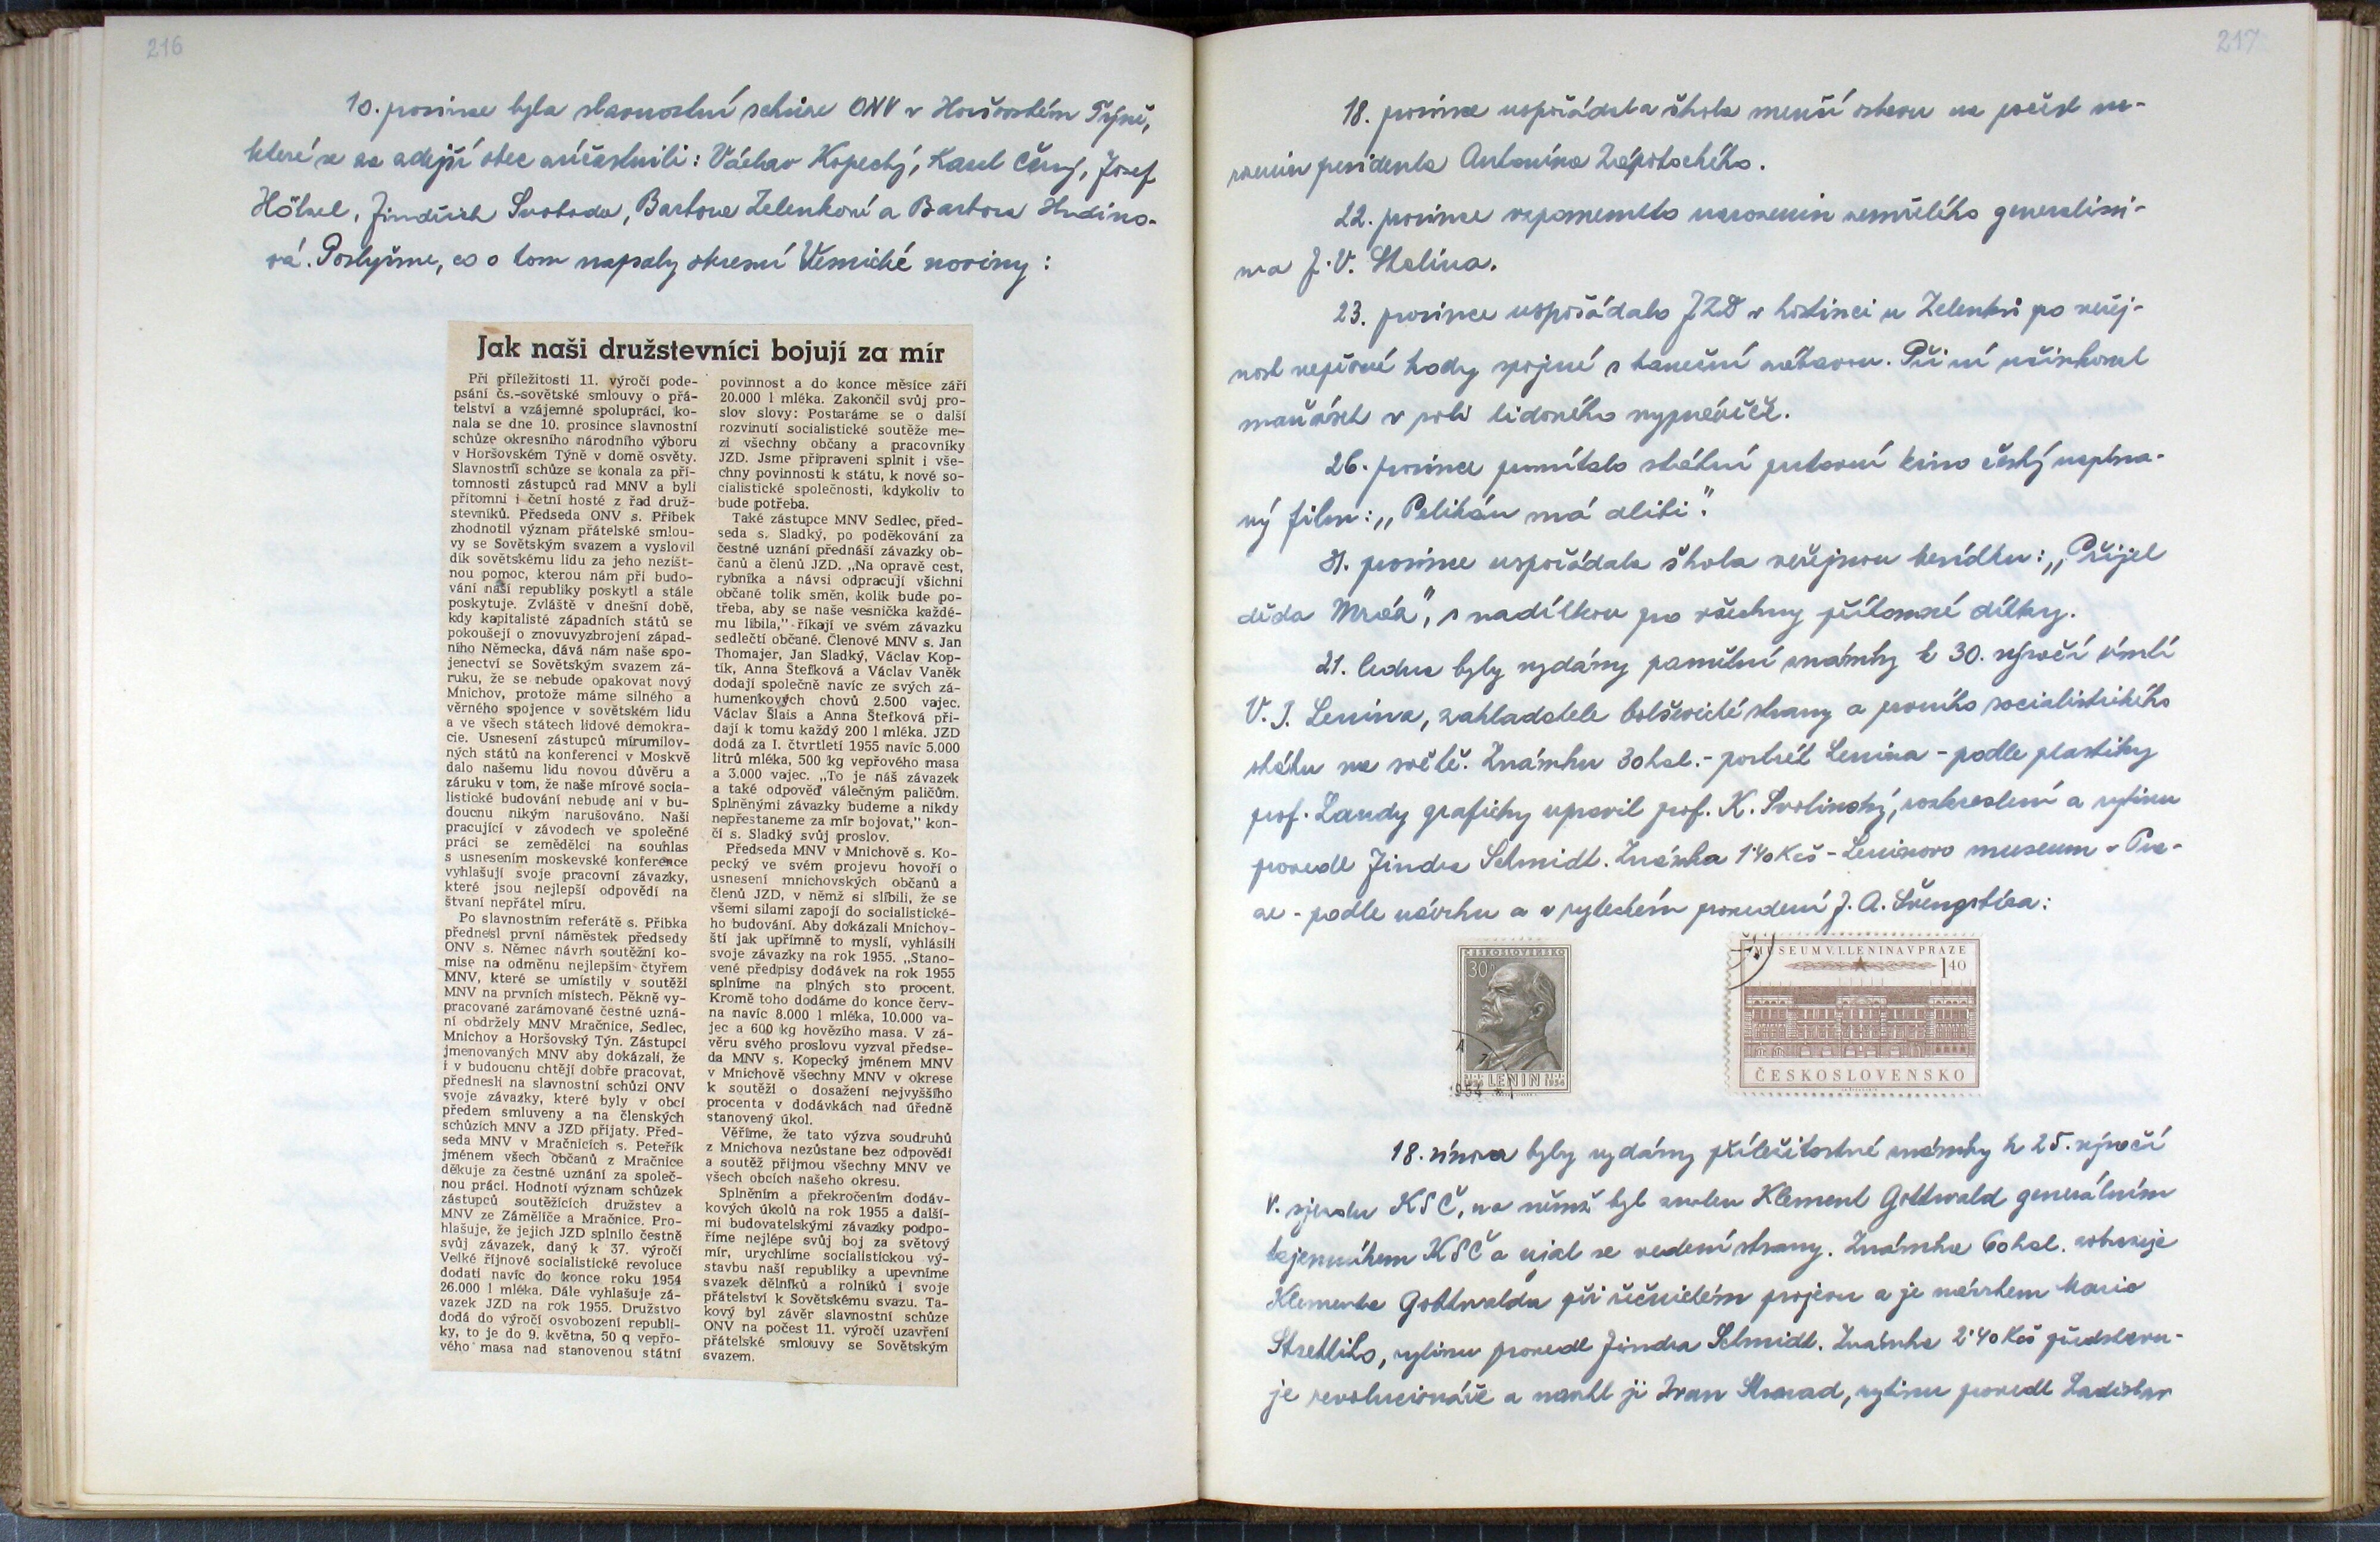 216
10. prosince byla slavnostní schůze ONV v Horšovském Týně,
které se za zdejší obec zúčastnili: Václav Kopecký, Karel Černý, Josef
Hölzel, Jindřich Svoboda, Barbora Zelenková a Barbora Hudino-
vá. Poslyšme, co o tom napsaly okresní Vesnické noviny:
Jak naši družstevníci bojují za mír
Při příležitosti 11. výročí pode-
psání čs.-sovětské smlouvy o přá-
telství a vzájemné spolupráci, ko-
nala se dne 10. prosince slavnostní
schůze okresního národního výboru
v Horšovském Týně v domě osvěty.
Slavnostní schůze se konala za pří-
tomnosti zástupců rad MNV a byli
přítomni i četní hosté z řad druž-
stevníků. Předseda ONV s. Příbek
zhodnotil význam přátelské smlou-
vy se Sovětským svazem a vyslovil
dík sovětskému lidu za jeho nezišt-
nou pomoc, kterou nám při budo-
vání naší republiky poskytl a stále
poskytuje. Zvláště v dnešní době,
kdy kapitalisté západních států se
pokoušejí o znovuvyzbrojení západ-
ního Německa, dává nám naše spo-
jenectví se Sovětským svazem zá-
ruku, že se nebude opakovat nový
Mnichov, protože máme silného a
věrného spojence v sovětském lidu
a ve všech státech lidové demokra-
cie. Usnesení zástupců mírumilov-
ných států na konferenci v Moskvě
dalo našemu lidu novou důvěru a
záruku v tom, že naše mírové socia-
listické budování nebude ani v bu-
doucnu nikým narušováno. Naši
pracující v závodech ve společné
práci se zemědělci na souhlas
s usnesením moskevské konference
vyhlašují svoje pracovní závazky,
které jsou nejlepší odpovědí na
štvaní nepřátel míru.
Po slavnostním referátě s. Příbka
přednesl první náměstek předsedy
ONV s. Němec návrh soutěžní ko-
mise na odměnu nejlepším čtyřem
MNV, které se umístily v soutěži
MNV na prvních místech. Pěkně vy-
pracované zarámované čestné uzná-
ní obdržely MNV Mračnice, Sedlec,
Mnichov a Horšovský Týn. Zástupci
jmenovaných MNV aby dokázali, že
i v budoucnu chtějí dobře pracovat,
přednesli na slavnostní schůzi ONV
svoje závazky, které byly v obci
předem smluveny a na členských
schůzích MNV a JZD přijaty. Před-
seda MNV v Mračnicích s. Peteřík
jménem všech občanů z Mračnice
děkuje za čestné uznání za společ-
nou práci. Hodnotí význam schůzek
zástupců soutěžících družstev a
MNV ze Zámělíče a Mračnice. Pro-
hlašuje, že jejich JZD splnilo čestně
svůj závazek, daný k 37. výročí
Velké říjnové socialistické revoluce
dodati navíc do konce roku 1954
26.000 l mléka. Dále vyhlašuje zá-
vazek JZD na rok 1955. Družstvo
dodá do výročí osvobození republi-
ky, to je do 9. května, 50 q vepřo-
vého masa nad stanovenou státní
povinnost a do konce měsíce září
20.000 l mléka. Zakončil svůj pro-
slov slovy: Postaráme se o další
rozvinutí socialistické soutěže me-
zi všechny občany a pracovníky
JZD. Jsme připraveni splnit i vše-
chny povinnosti k státu, k nové so-
cialistické společnosti, kdykoliv to
bude potřeba.
Také zástupce MNV Sedlec, před-
seda s. Sladký, po poděkování za
čestné uznání přednáší závazky ob-
čanů a členů JZD. „Na opravě cest,
rybníka a návsi odpracují všichni
občané tolik směn, kolik bude po-
třeba, aby se naše vesnička každé-
mu líbila,” říkají ve svém závazku
sedlečtí občané. Členové MNV s. Jan
Thomajer, Jan Sladký, Václav Kop-
tík, Anna Štefková a Václav Vaněk
dodají společně navíc ze svých zá-
humenkových chovů 2.500 vajec.
Václav Šlais a Anna Štefková při-
dají k tomu každý 200 l mléka. JZD
dodá za I. čtvrtletí 1955 navíc 5.000
litrů mléka, 500 kg vepřového masa
a 3.000 vajec. „To je náš závazek
a také odpověď válečným paličům.
Splněnými závazky budeme a nikdy
nepřestaneme za mír bojovat,” kon-
čí s. Sladký svůj proslov.
Předseda MNV v Mnichově s. Ko-
pecký ve svém projevu hovoří o
usnesení mnichovských občanů a
členů JZD, v němž si slíbili, že se
všemi silami zapojí do socialistické-
ho budování. Aby dokázali Mnichov-
ští jak upřímně to myslí, vyhlásili
svoje závazky na rok 1955. „Stano-
vené předpisy dodávek na rok 1955
splníme na plných sto procent.
Kromě toho dodáme do konce červ-
na navíc 8.000 l mléka, 10.000 va-
jec a 600 kg hovězího masa. V zá-
věru svého proslovu vyzval předse-
da MNV s. Kopecký jménem MNV
v Mnichově všechny MNV v okrese
k soutěži o dosažení nejvyššího
procenta v dodávkách nad úředně
stanovený úkol.
Věříme, že tato výzva soudruhů
z Mnichova nezůstane bez odpovědi
a soutěž přijmou všechny MNV ve
všech obcích našeho okresu.
Splněním a překročením dodáv-
kových úkolů na rok 1955 a další-
mi budovatelskými závazky podpo-
říme nejlépe svůj boj za světový
mír, urychlíme socialistickou vý-
stavbu naší republiky a upevníme
svazek dělníků a rolníků i svoje
přátelství k Sovětskému svazu. Ta-
kový byl závěr slavnostní schůze
ONV na počest 11. výročí uzavření
přátelské smlouvy se Sovětským
svazem.
217
18. prosince uspořádala škola menší oslavu na počest na-
rozenin presidenta Antonína Zápotockého.
22. prosince vzpomenuto narozenin zemřelého generalissi-
ma J. V. Stalina.
23. prosince uspořádalo JZD v hostinci u Zelenků pro veřej-
nost vepřové hody spojené s taneční zábavou. Při ní účinkoval
maňásek v roli lidového vypravěče.
26. prosince promítalo státní putovní kino český veselohra-
ný film: „Pelikán má alibi".
31. prosince uspořádala škola veřejnou besídku: „Přijel
děda Mráz", s nadílkou pro všechny přítomné dítky.
21. ledna byly vydány pamětní známky k 30. výročí úmrtí
V. I. Lenina, zakladatele bolševické strany a prvního socialistického
státu na světě. Známku 30 hal. - portrét Lenina - podle plastiky
prof. Laudy graficky upravil prof. K. Svolinský, rozkreslení a rytinu
provedl Jindra Schmidt. Známka 1'40 Kčs - Leninovo museum v Pra-
ze - podle návrhu a v ryteckém provedení J. A. Švengsbíra:
ČESKOSLOVENSKO
30h
21.I. 1924 LENIN 21.I. 1954
1954
MUSEUM V.I.LENINA V PRAZE
1 40
ČESKOSLOVENSKO
18. února byly vydány příležitostné známky k 25. výročí
V. sjezdu KSČ, na němž byl zvolen Klement Gottwald generálním
tajemníkem KSČ a ujal se vedení strany. Známka 60 hal. zobrazuje
Klementa Gottwalda při řečnickém projevu a je návrhem Maxe
, rytinu provedl Jindra Schmidt. Známka 2'40 Kčs představu-
je revolucionáře a navrhl ji Ivan Strnad, rytinu provedl Ladislav